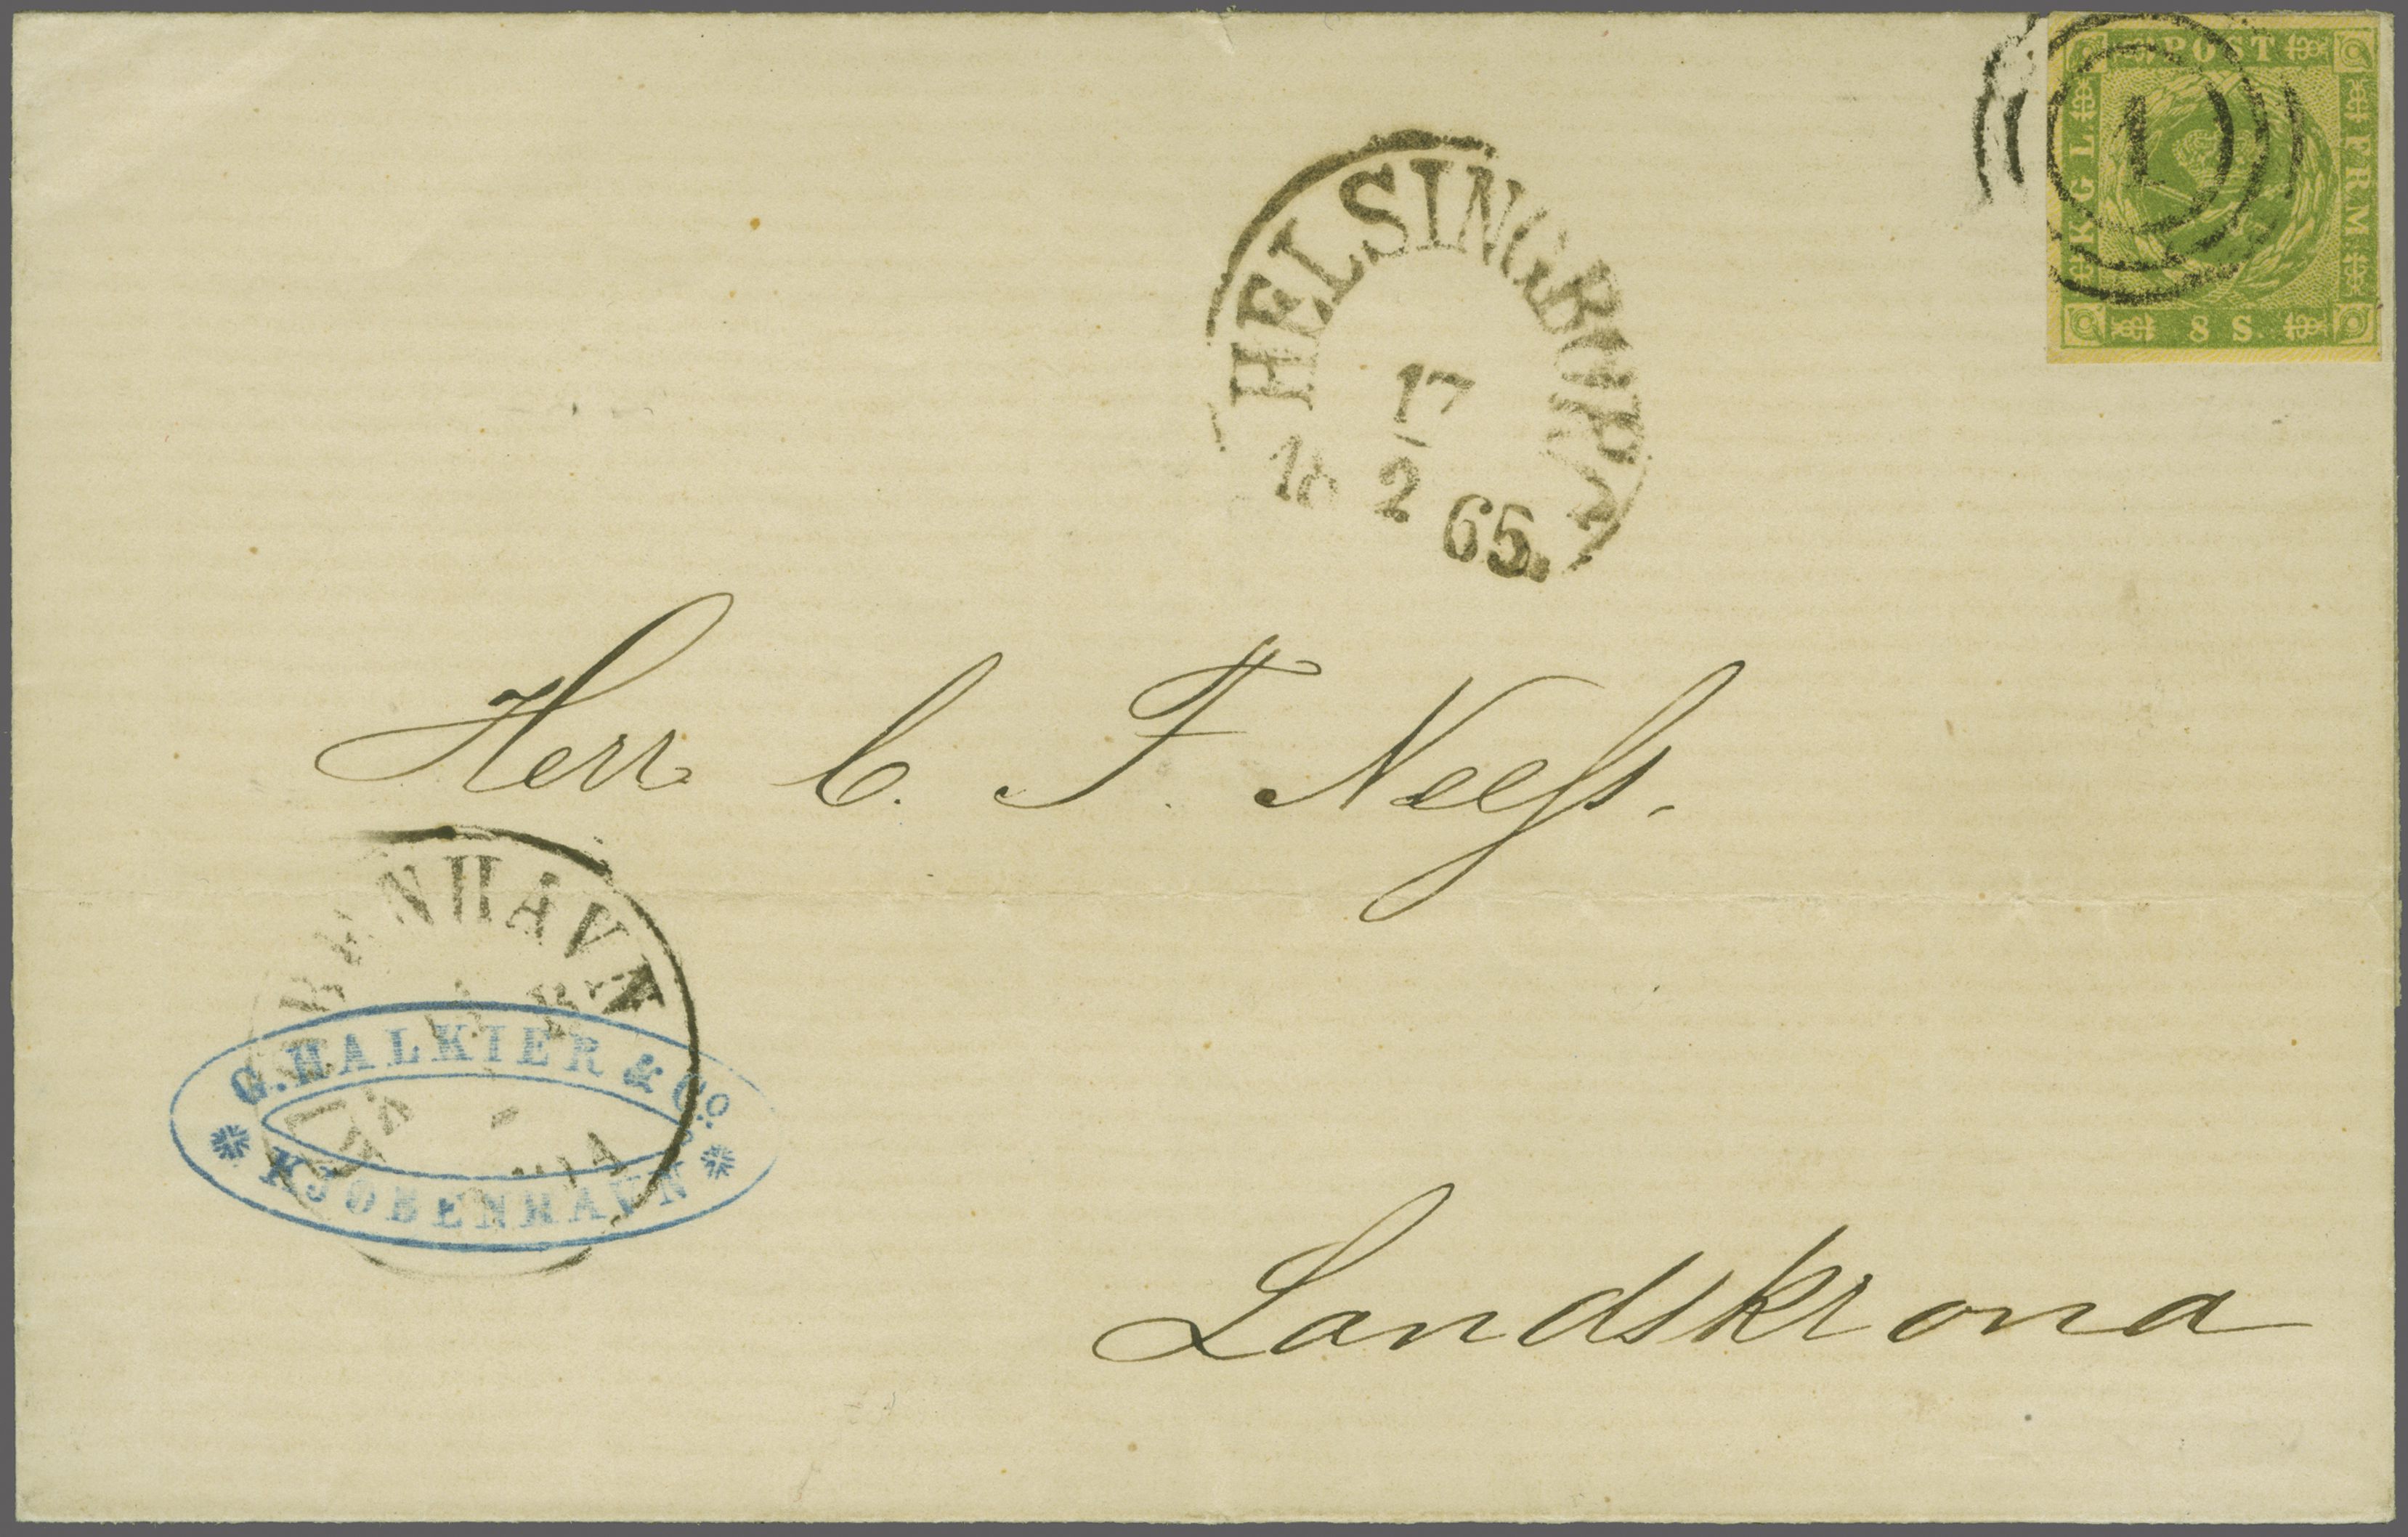 POST
KGL
FRM:
8 S.
1
HELSINGBORG
17
2
18 65.
Herr C. F. Neess.
KJØBENHAVN
G. HALKIER & Co.
KJØBENHAVN
Landskrona